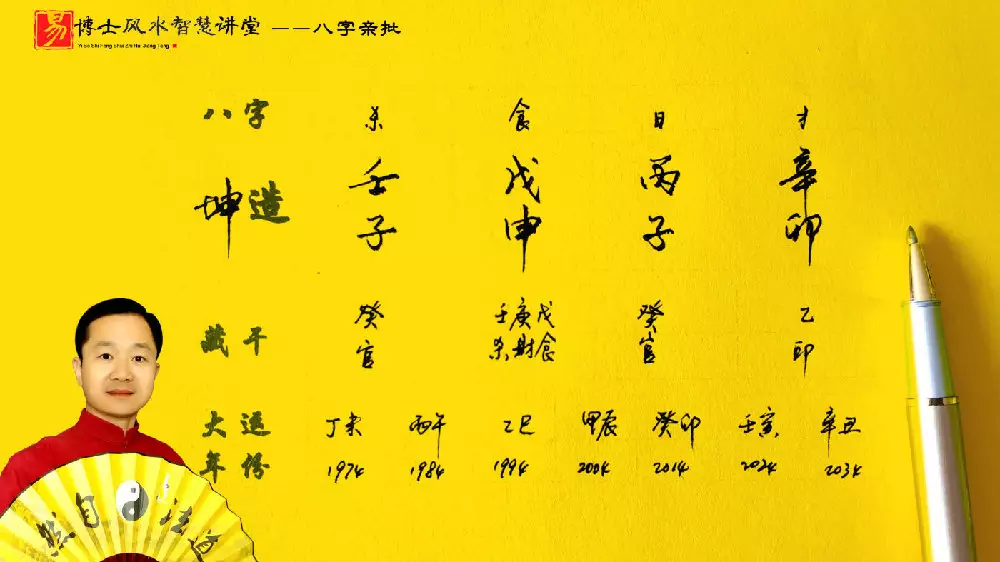 易 博士风水智慧讲堂 ——八字亲批
八字 杀 食 日 才
坤造 壬 戊 丙 辛
子 申 子 卯
藏干 癸 壬庚戊 癸 乙
官 杀财食 官 印
大运 丁未 丙午 乙巳 甲辰 癸卯 壬寅 辛丑
年份 1974 1984 1994 2004 2014 2024 2034
道法自然